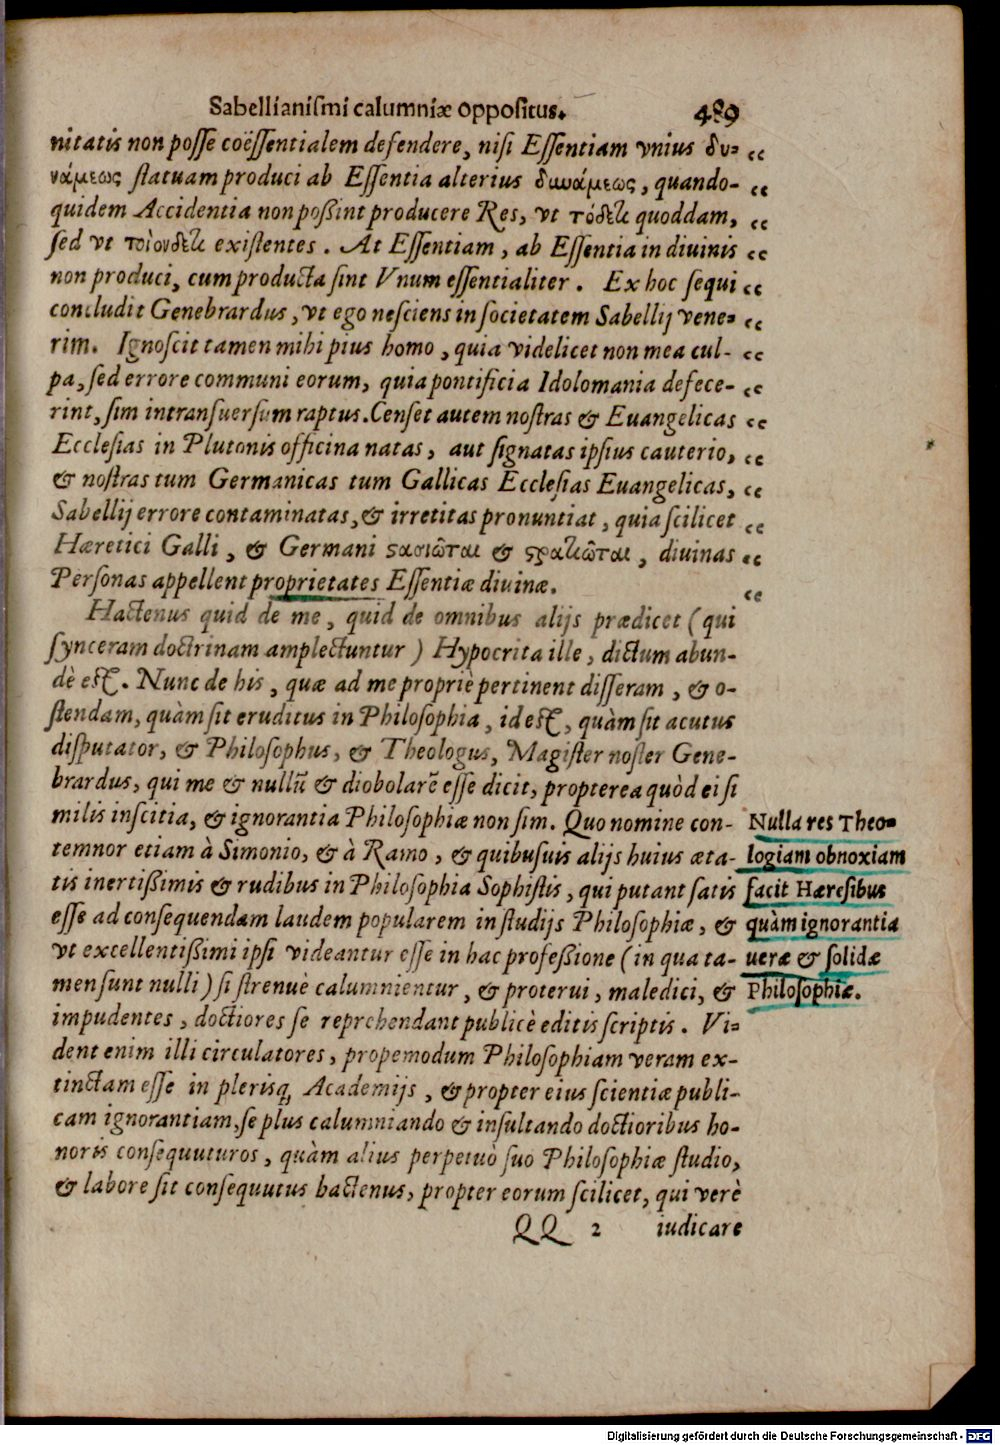 Sabellianiſmi calumniæ oppoſitus. 489
nitatis non poſſe coëſſentialem defendere, niſi Eſſentiam vnius δυ= ‹‹
νάμεως ſtatuam produci ab Eſſentia alterius δυνάμεως, quando- ‹‹
quidem Accidentia non poßint producere Res, vt τόδε τι quoddam, ‹‹
ſed vt τοιόνδε τι exiſtentes. At Eſſentiam, ab Eſſentia in diuinis ‹‹
non produci, cum producta ſint Vnum eſſentialiter. Ex hoc ſequi ‹‹
concludit Genebrardus, vt ego neſciens in ſocietatem Sabellij vene= ‹‹
rim. Ignoſcit tamen mihi pius homo, quia videlicet non mea cul- ‹‹
pa, ſed errore communi eorum, quia pontificia Idolomania defece- ‹‹
rint, ſim in tranſuerſum raptus. Cenſet autem noſtras & Euangelicas ‹‹
Eccleſias in Plutonis officina natas, aut ſignatas ipſius cauterio, ‹‹
& noſtras tum Germanicas tum Gallicas Eccleſias Euangelicas, ‹‹
Sabellij errore contaminatas, & irretitas pronuntiat, quia ſcilicet ‹‹
Hæretici Galli, & Germani ϛασιῶται & ϛρατιῶται, diuinas ‹‹
Perſonas appellent proprietates Eſſentiæ diuinæ. ‹‹
Hactenus quid de me, quid de omnibus alijs prædicet (qui
ſynceram doctrinam amplectuntur) Hypocrita ille, dictum abun-
dè eſt. Nunc de his, quæ ad me propriè pertinent diſſeram, & o-
ſtendam, quàm ſit eruditus in Philoſophia, id eſt, quàm ſit acutus
diſputator, & Philoſophus, & Theologus, Magiſter noſter Gene-
brardus, qui me & nullũ & diobolarẽ eſſe dicit, propterea quòd ei ſi
milis inſcitia, & ignorantia Philoſophiæ non ſim. Quo nomine con-
temnor etiam à Simonio, & à Ramo, & quibuſuis alijs huius æta-
tis inertißimis & rudibus in Philoſophia Sophiſtis, qui putant ſatis
eſſe ad conſequendam laudem popularem in ſtudijs Philoſophiæ, &
vt excellentißimi ipſi videantur eſſe in hac profeßione (in qua ta-
men ſunt nulli) ſi ſtrenuè calumnientur, & proterui, maledici, &
impudentes, doctiores ſe reprehendant publicè editis ſcriptis. Vi=
dent enim illi circulatores, propemodum Philoſophiam veram ex-
tinctam eſſe in plerisq; Academijs, & propter eius ſcientiæ publi-
cam ignorantiam, ſe plus calumniando & inſultando doctioribus ho-
noris conſequuturos, quàm alius perpetuò ſuo Philoſophiæ ſtudio,
& labore ſit conſequutus hactenus, propter eorum ſcilicet, qui verè
QQ 2 iudicare
Nulla res Theo=
logiam obnoxiam
facit Hæreſibus
quàm ignorantia
ueræ & ſolidæ
Philoſophiæ.
Digitalisierung gefördert durch die Deutsche Forschungsgemeinschaft - DFG